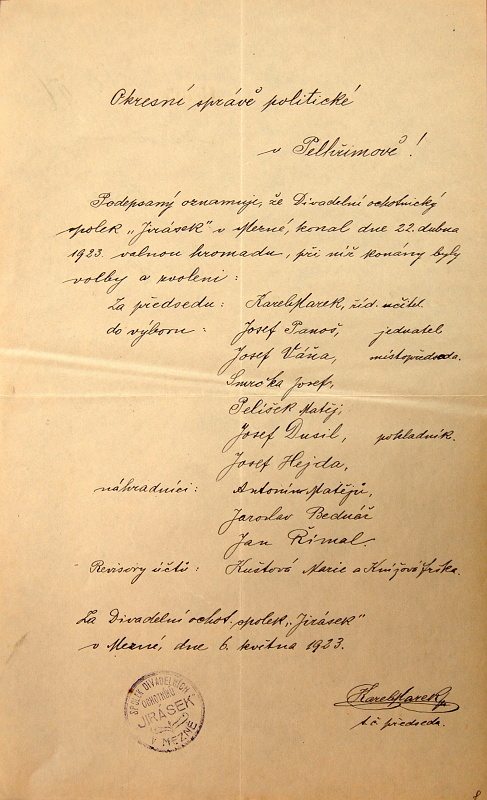 Okresní správě politické
v Pelhřimově!
Podepsaný oznamuje, že Divadelní ochotnický
spolek „Jirásek" v Mezné, konal dne 22. dubna
1923. valnou hromadu, při níž konány byly
volby a zvoleni:
Za předsedu: Karel Marek, říd. učitel
do výboru: Josef Panoš, jednatel
Josef Váňa, místopředseda.
Smrčka Josef,
Pelíšek Matěj,
Josef Dusil, pokladník.
Josef Hejda,
náhradníci: Antonín Matějů,
Jaroslav Bednář
Jan Římal.
Revisory účtů: Kuštová Marie a
Za Divadelní ochot. spolek „Jirásek"
v Mezné, dne 6. května 1923.
SPOLEK DIVADELNÍCH
OCHOTNÍKŮ
JIRÁSEK
V MEZNÉ
Karel Marek
t.č. předseda.
8